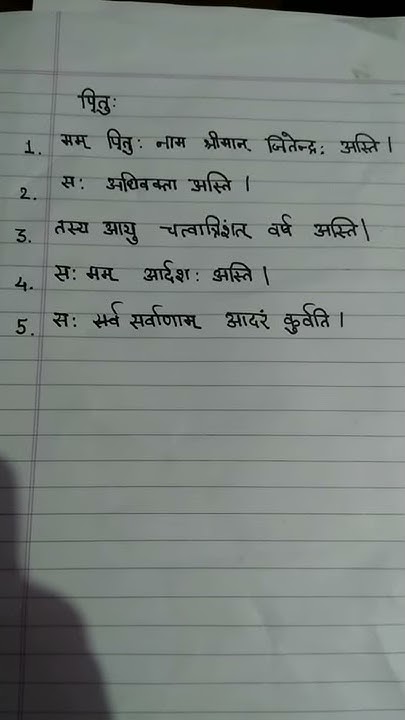 पितुः
1. मम् पितुः नाम श्रीमान् जितेन्द्रः अस्ति।
2. सः अधिवक्ता अस्ति।
3. तस्य आयु चत्वात्रिशंत् वर्ष अस्ति।
4. सः मम् आर्दशः अस्ति।
5. सः सर्व सर्वाणाम् आदरं कुर्वति।